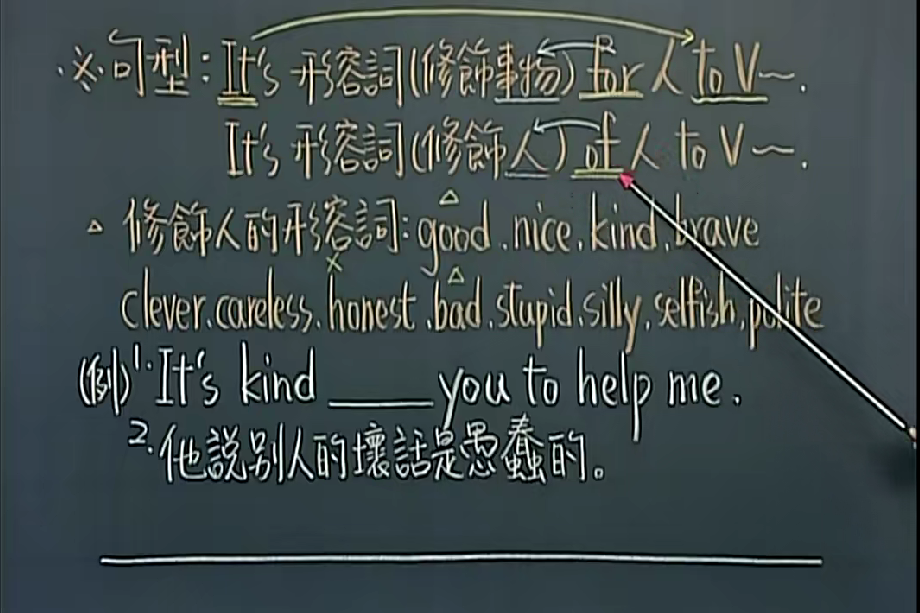 ※句型：It's 形容詞(修飾事物) for 人 to V～.
It's 形容詞(修飾人) of 人 to V～.
△ 修飾人的形容詞：good.nice.kind.brave
clever.careless.honest.bad.stupid.silly.selfish.polite
(例)1.It's kind ____ you to help me.
2.他說別人的壞話是愚蠢的。